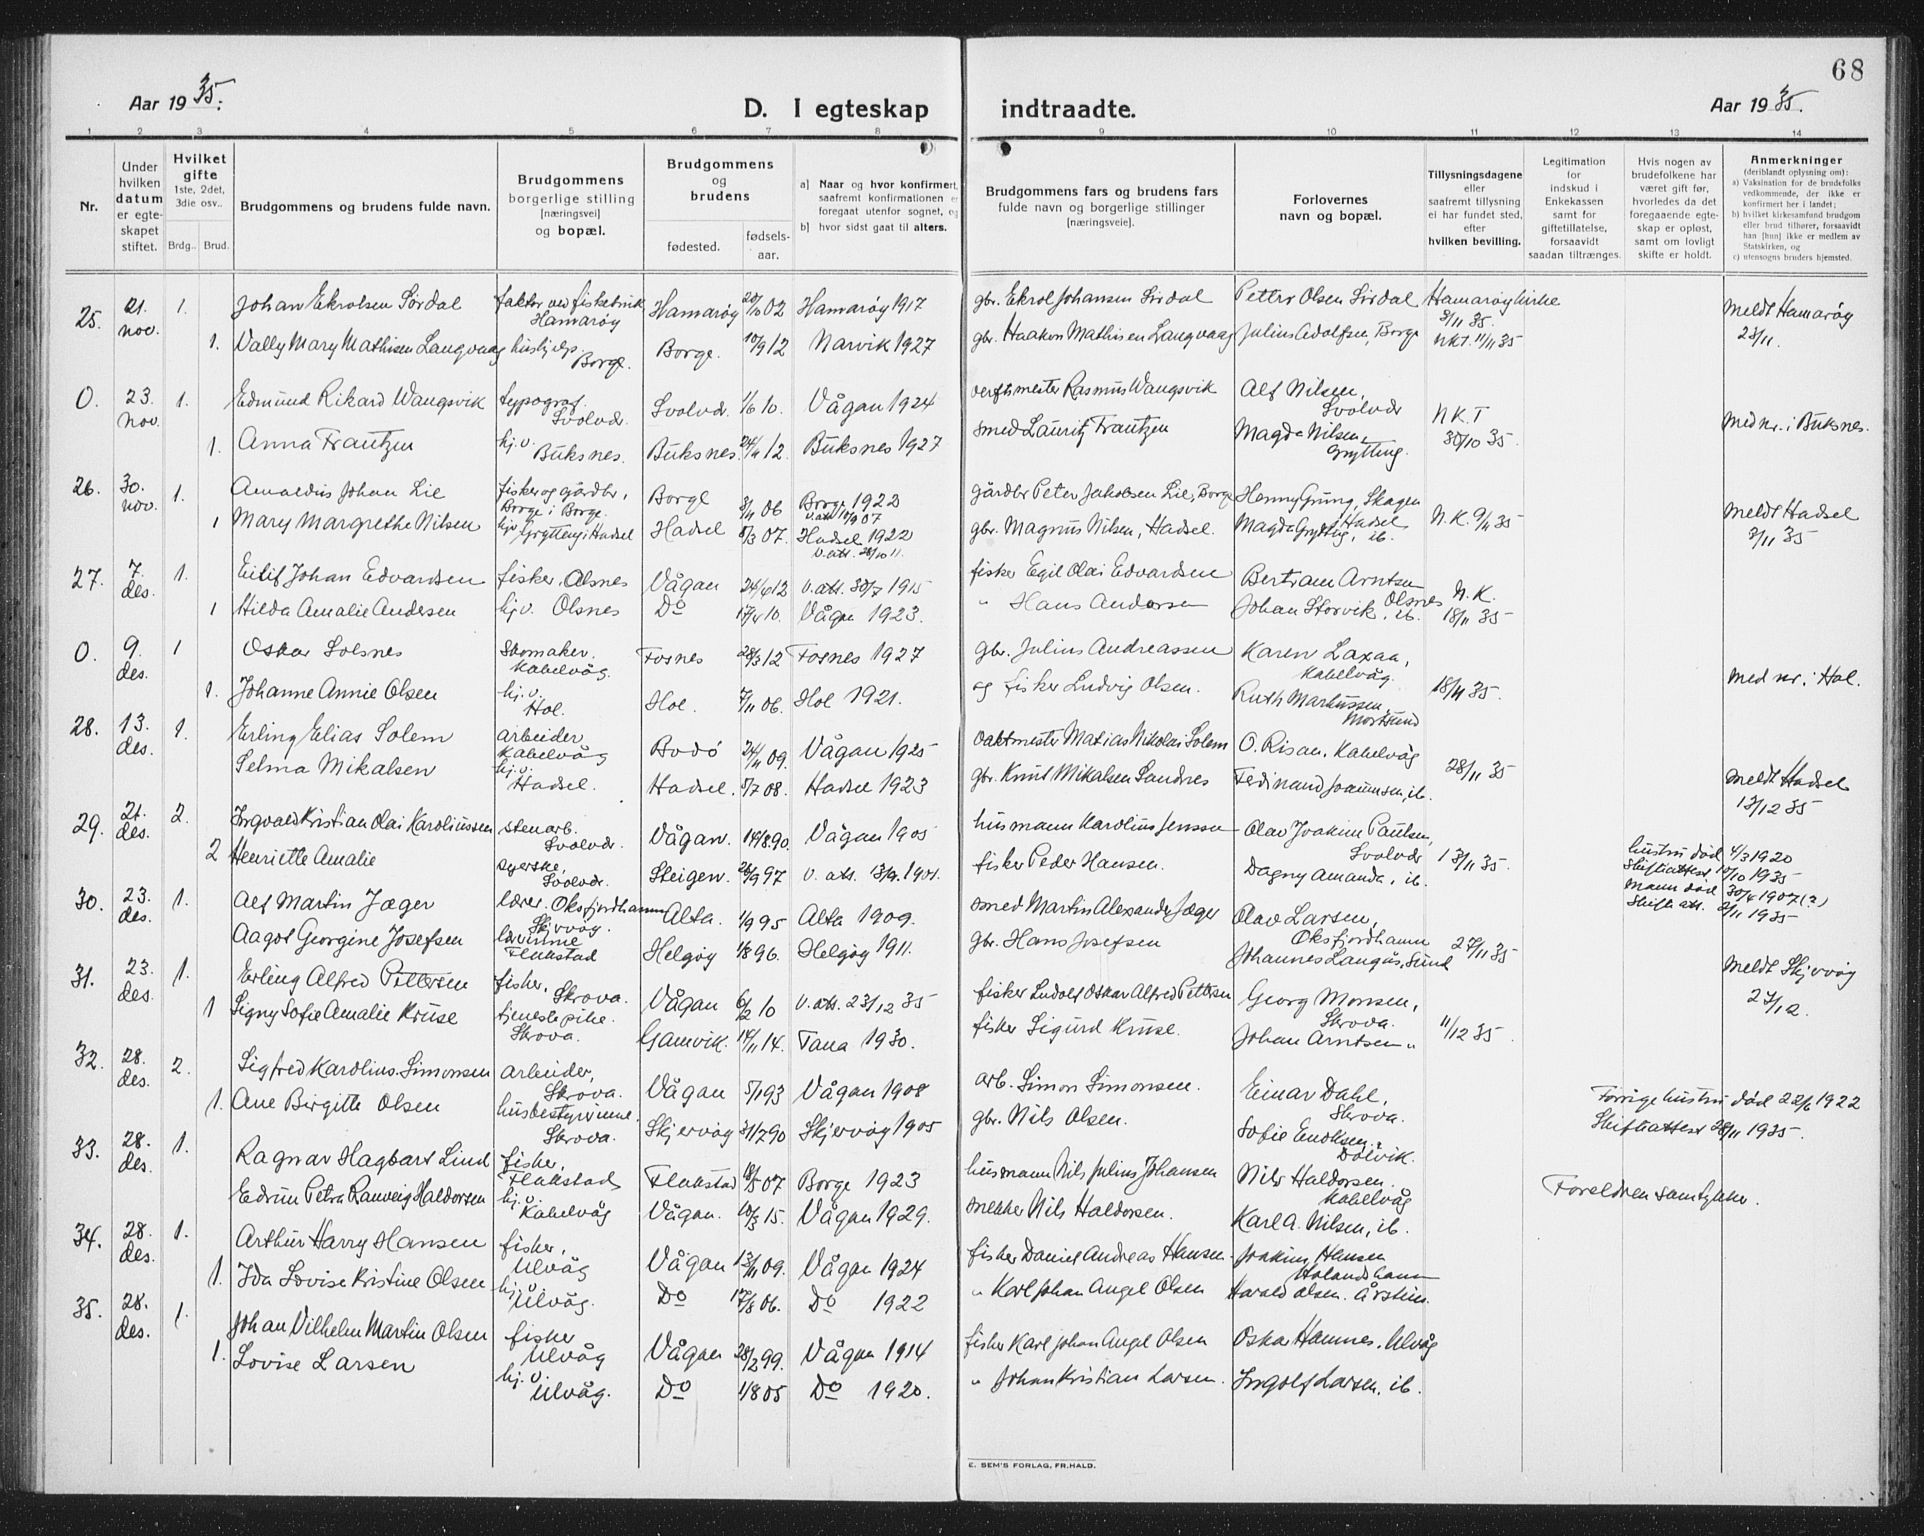 68
Aar 1935.
D. I egteskap indtraadte.
Aar 1935.
1 2 3 4 5 6 7 8 9 10 11 12 13 14
Nr.
Under hvilken datum er egteskapet stiftet.
Hvilket gifte 1ste, 2det, 3die osv..
Brdg.. Brud.
Brudgommens og brudens fulde navn.
Brudgommens borgerlige stilling [næringsvei] og bopæl.
Brudgommens og brudens
fødested. fødsels-aar.
a] Naar og hvor konfirmert, saafremt konfirmationen er foregaat utenfor sognet, og
b] hvor sidst gaat til alters.
Brudgommens fars og brudens fars fulde navn og borgerlige stillinger [næringsveie].
Forlovernes navn og bopæl.
Tillysningsdagene eller saafremt tillysning ei har fundet sted, efter hvilken bevilling.
Legitimation for indskud i Enkekassen samt for giftetillatelse, forsaavidt saadan tiltrænges.
Hvis nogen av brudefolkene har været gift før, hvorledes da det foregaaende egteskap er opløst, samt om lovligt skifte er holdt.
Anmerkninger (deriblandt oplysning om):
a) Vaksination for de brudefolks vedkommende, der ikke er konfirmert her i landet;
b) hvilket kirkesamfund brudgom eller brud tilhører, forsaavidt han [hun] ikke er medlem av Statskirken, og
c) utensogns bruders hjemsted.
25. 21. nov. 1. Johan Ekrolsen Sørdal faktor ved fiskebruk Hamarøy Hamarøy 20/10 02 Hamarøy 1917 gbr. Ekrol Johansen Sørdal Petter Olsen Sørdal Hamarøy kirke 3/11 35. meldt Hamarøy 23/11.
1. Vally Mary Mathisen Langvaag hushjelp Borge. Borge. 10/9 12 Narvik 1927 gbr. Haakon Mathisen Langvaag Julius Adolfsen, Borge NKT. 11/11 35
0. 23. nov. 1. Edmund Rikard Wangsvik typograf Svolvær Svolvær. 1/6 10. Vågan 1924 verftmester Rasmus Wangsvik Alf Nilsen, Svolvær N.K.T 30/10 35. med nr. i Buksnes.
1. Anna Frantzen hj.v. Buksnes. Buksnes. 24/4 12. Buksnes 1927 smed Lauritz Frantzen Magda Nilsen, Grytting.
26. 30. nov. 1. Arnoldus Johan Lie fisker og gårdbr. Borge i Borge. Borge 3/11 06 Borge 1922 v.att. 10/9 07 gårdbr Peter Jakobsen Lie, Borge Henny Grung, Skagen Hadsel N.K. 9/11 35 meldt Hadsel 3/11 35
1 Mary Margrethe Nilsen hjv. Grytting i Hadsel Hadsel 8/3 07. Hadsel 1922 v.att. 28/10 11. gbr. Magnus Nilsen, Hadsel. Magda Grytting, ib.
27. 7. des. 1. Eilif Johan Edvardsen fisker, Olsnes Vågan 24/6 12 v.att. 30/7 1915 fisker Egil Olai Edvardsen Bertram Arntsen Olsnes N.K. 18/11 35
1 Hilda Amalie Andersen hj.v. Olsnes Do 17/4 10. Vågan 1923. " Hans Andersen Johan Storvik, ib.
0. 9. des. 1 Oskar Solsnes Skomaker. Kabelvåg. Fosnes 28/3 12 Fosnes 1927 gbr. Julius Andreassen Karen Laxaa, Kabelvåg. 18/11 35. med nr. i Hol.
1. Johanne Annie Olsen hj.v. Hol. Hol. 7/11 06. Hol 1921. og fisker Ludvig Olsen. Ruth Markussen, Mortsund
28. 13. des. 1. Erling Elias Solem arbeider Kabelvåg Bodö 24/11 09. Vågan 1925 vaktmester Matias Nikolai Solem O. Risan, Kabelvåg 28/11 35 meldt Hadsel 13/12 35
Selma Mikalsen hj.v. Hadsel. Hadsel. 5/7 08. Hadsel 1923 gbr. Knut Mikalsen Sandnes Ferdinand Joakimsen, ib.
29. 21. des. 2. Ingvald Kristian Olai Karoliussen stenarb. Svolvær. Vågan. 14/8 90. Vågan 1905 husmann Karolius Jenssen Olav Joakim Paulsen, Svolvær 13/11 35. hustru död 4/3 1920 Skifteattest 10/10 1935
2 Henriette Amalie syerske, Svolvær. Steigen. 26/9 97 v. att. 13/9. 1901. fisker Peder Hansen. Dagny Amanda, ib. mann död 30/4 1907 (?) Skifteatt. 2/11 1935
30. 23. des. 1. Alf Martin Jæger lærer. Oksfjordhamn Skjervøy. Alta. 1/9 95 Alta 1909. smed Martin Alexander Jæger Olav Larsen, Oksfjordhamn 27/11 35 meldt Skjervøy 27/12.
Aagot Georgine Josefsen lærerinne Flakstad Helgøy 1/8 96. Helgøy 1911. gbr. Hans Josefsen Johannes Langås, Sund
31. 23. des. 1. Erling Alfred Pettersen fisker, Skrova. Vågan 6/2 10 v.att. 23/12 35 fisker Ludolf Oskar Alfred Pettersen Georg Monsen, Skrova. 11/12 35.
1 Signy Sofie Amalie Kruse tjenestepike. Skrova. Gamvik. 14/11 14. Tana 1930. fisker Sigurd Kruse. Johan Arntsen "
32. 28. des. 2. Sigfred Karolius Simonsen arbeider, Skrova. Vågan 5/1 93 Vågan 1908 arb. Simon Simonsen. Einar Dahl, Skrova. Forrige hustru död 22/6 1922 Skifteattest 28/11 1935.
1. Ane Birgitte Olsen husbestyrerinne. Skrova. Skjervøy 31/7 90 Skjervøy 1905 gbr. Nils Olsen. Sofie Enoksen, Dalvik.
33. 28. des. 1. Ragnar Hagbart Lind fisker, Flakstad Flakstad 18/5 07 Borge 1923 husmann Nils Julius Johansen Nils Haldorsen. Kabelvåg Foreldren samtykker.
Edrun Petra Ranveig Haldorsen hj.v. Kabelvåg Vågan. 10/3 15. Vågan 1929. snekker Nils Haldorsen. Karl A. Nilsen, ib.
34. 28. des. 1. Arthur Harry Hansen fisker, Ulvåg Vågan 13/11 09. Vågan 1924 fisker Daniel Andreas Hansen Joakim Hansen Holandshamn
1. Ida Lovise Kristine Olsen hj.v. Ulvåg. Do 17/8 06. Do 1922 " Karl Johan Angel Olsen Harald Olsen. Årstein.
35. 28. des. 1. Johan Vilhelm Martin Olsen fisker Ulvåg Vågan 28/2 99. Vågan 1914 fisker Karl Johan Angel Olsen Oskar Hamnes. Ulvåg
1. Lovise Larsen hj.v. Ulvåg. Do 1/8 05 Do 1920. " Johan Kristian Larsen. Ingolf Larsen, ib.
E. SEM'S FORLAG, FR.HALD.